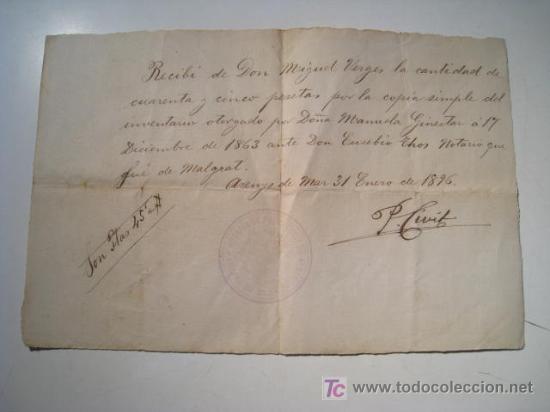 Recibí de Don Miguel Verges la cantidad de
cuarenta y cinco pesetas por la copia simple del
inventario otorgado por Doña Manuela Ginestar á 17
Diciembre de 1863 ante Don Eusebio Thos Notario que
fué de Malgrat.
Arenys de Mar 31 Enero de 1896.
P. Civit
Son Ptas 45
TC www.todocoleccion.net